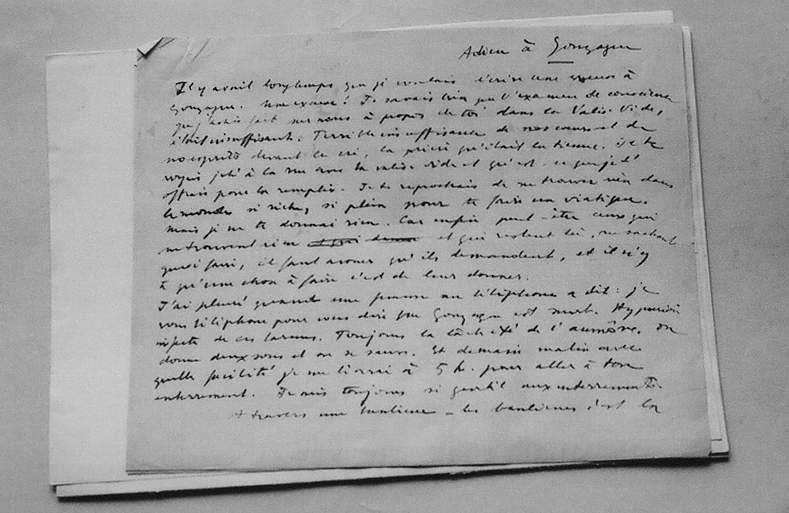 Adieu à Gonzague
Il y avait longtemps que je voulais t'écrire une excuse à
Gonzague. Une excuse ! Je savais bien que l'examen de conscience
que j'avais fait sur nous à propos de toi dans la Valise Vide,
était insuffisant. Terrible insuffisance de nos cœurs et de
nos esprits devant le cri, la prière qu'était la tienne. Je te
voyais jeté à la rue avec ta valise vide et qu'est-ce que je t'
offrais pour la remplir. Je te reprochais de ne trouver rien dans
le monde si riche, si plein pour te faire un viatique.
Mais je ne te donnai rien. Car enfin peut-être ceux qui
ne trouvent rien et qui restent là, ne sachant
quoi faire, il faut avouer qu'ils demandent, et il n'y
a qu'une chose à faire c'est de leur donner.
J'ai pleuré quand une femme au téléphone a dit : je
vous téléphone pour vous dire que Gonzague est mort. Hypocrisie
infecte de ces larmes. Toujours la lâcheté de l'aumône. On
donne deux sous et on se sauve. Et demain matin avec
quelle facilité je me lèverai à 5 h. pour aller à ton
enterrement. Je suis toujours si gentil aux enterrements.
A travers une banlieue – les banlieues c'est la